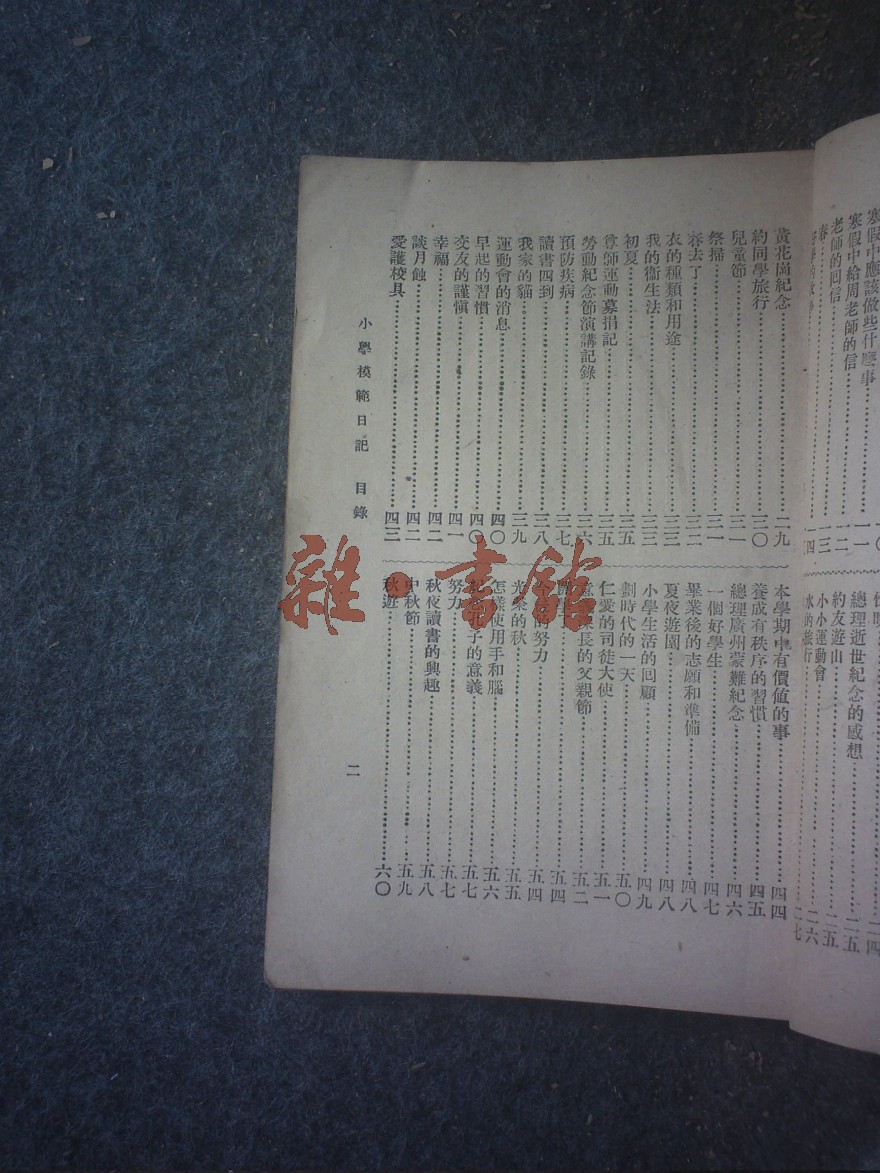 寒假中應該做些什麼事……一〇
寒假中給周老師的信……一一
老師的回信……一二
春……一三
一四
總理逝世紀念的感想……二五
約友遊山……二五
小小運動會……二六
的旅行……二七
黃花崗紀念……二九
約同學旅行……三〇
兒童節……三一
祭掃……三一
春去了……三二
衣的種類和用途……三三
我的衞生法……三三
初夏……三五
尊師運動募捐記……三五
勞動紀念節演講記錄……三六
預防疾病……三七
讀書四到……三八
我家的貓……三九
運動會的消息……四〇
早起的習慣……四〇
交友的謹愼……四一
幸福……四二
談月蝕……四二
愛護校具……四三
本學期中有價値的事……四四
養成有秩序的習慣……四五
總理廣州蒙難紀念……四六
一個好學生……四七
畢業後的志願和準備……四八
夏夜遊園……四八
小學生活的回顧……四九
劃時代的一天……五〇
仁愛的司徒大使……五一
長的父親節……五二
五四
的努力……五四
光榮的秋……五五
怎樣使用手和腦……五六
子的意義……五七
努力……五七
秋夜讀書的興趣……五八
中秋節……五九
秋遊……六〇
小學模範日記 目錄
二
雜·書館